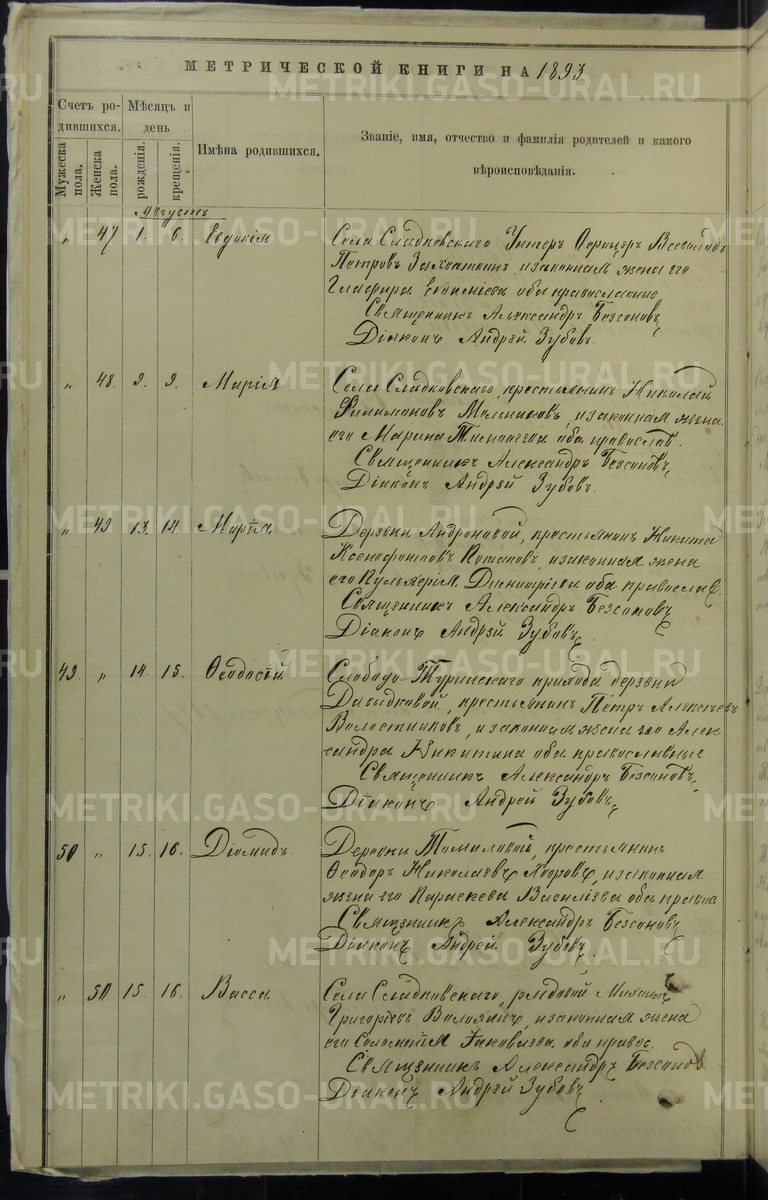 МЕТРИЧЕСКОЙ КНИГИ НА 1893
Счетъ родившихся.
Мѣсяцъ и день
Имѣна родившихся.
Званіе, имя, отчество и фамилія родителей и какого
вѣроисповѣданія.
Мужеска пола.
Женска пола.
рожденія.
крещенія.
Августъ
" 47 1. 6. Евдокія
Села Сладковскаго Унтеръ Офицеръ
Петровъ и законная жена его
Глафира оба православные
Священникъ Александръ Безсоновъ
Діаконъ Андрей Зубовъ.
" 48. 2. 9. Марія
Села Сладковскаго, крестьянинъ Николай
Филимоновъ Мельниковъ, и законная жена
его Марина Тимоѳеева оба православ.
Священникъ Александръ Безсоновъ
Діаконъ Андрей Зубовъ.
" 49 13. 14. Марія
Деревни Андроновой, крестьянинъ Никита
Ксенофонтовъ Потаповъ, и законная жена
его Пульхерія Димитріева оба православ.
Священникъ Александръ Безсоновъ
Діаконъ Андрей Зубовъ.
49. " 14. 15. Ѳеодосій
Слободо-Туринскаго прихода деревни
Давыдковой, крестьянинъ Петръ Алексѣевъ
и законная жена его Алек-
сандра Никитина оба православные
Священникъ Александръ Безсоновъ
Діаконъ Андрей Зубовъ
50 " 15. 16. Діомидъ.
Деревни Томиловой, крестьянинъ
Ѳеодоръ Николаевъ и законная
жена его Параскева Василіева оба правосл
Священникъ Александръ Безсоновъ
Діаконъ Андрей Зубовъ
" 50 15. 16. Васса.
Села Сладковскаго, рядовой Михаилъ
Григорьевъ и законная жена
его Соломонія Іаковлева оба правос.
Священникъ Александръ Безсоновъ
Діаконъ Андрей Зубовъ
METRIKI.GASO-URAL.RU